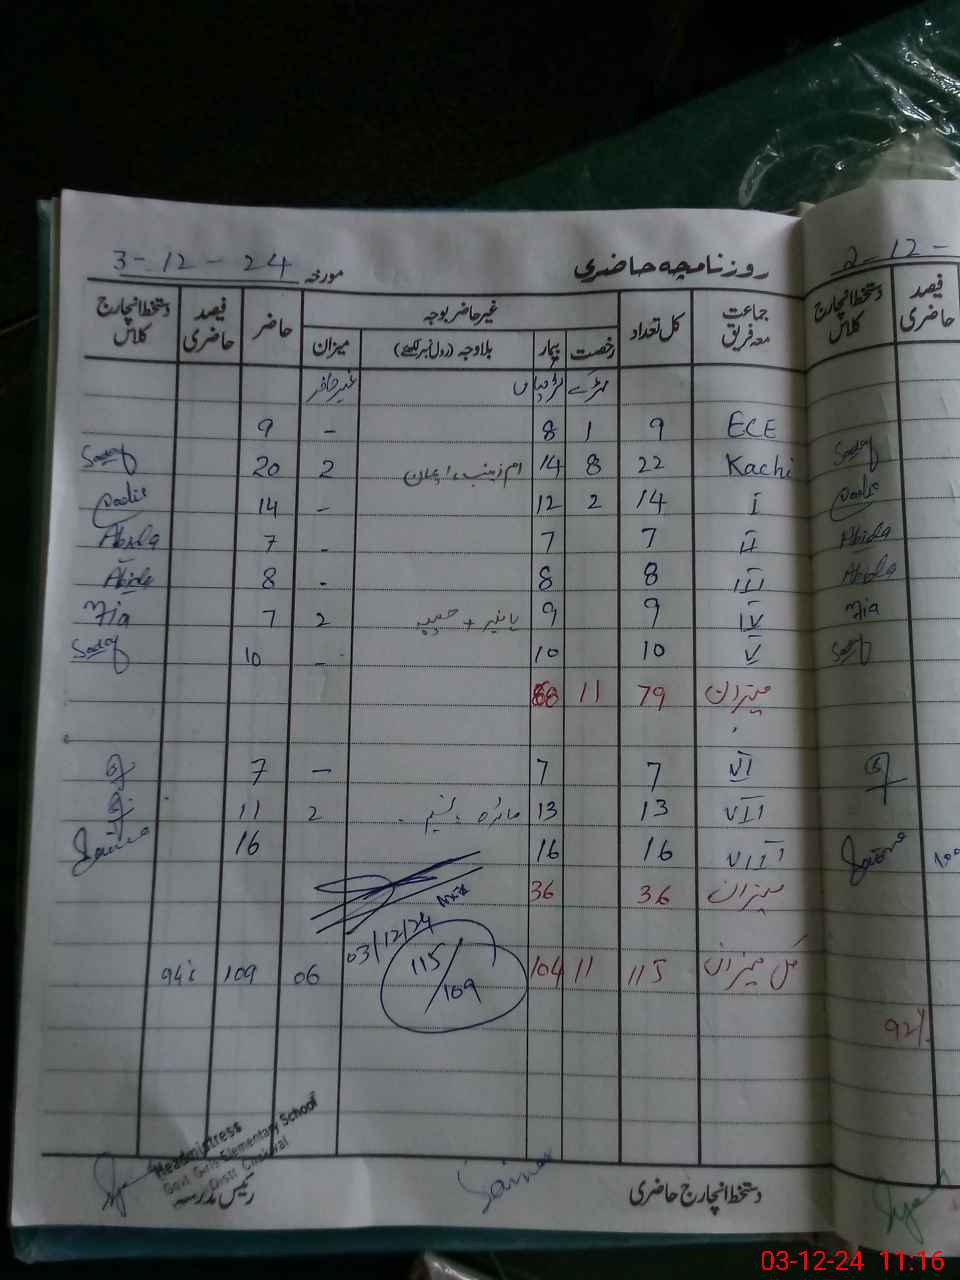 روزنامچہ حاضری
مورخہ 3-12-24
جماعت معہ فریق کل تعداد غیر حاضر بوجہ حاضر فیصد حاضری دستخط انچارج کلاس
رخصت بیمار بلاوجہ (رول نمبر لکھیے) میزان
لڑکے لڑکیاں غیر حاضر
ECE 9 1 8 - 9
Kachi 22 8 14 ام زینب، ایمان 2 20 Sadaf
I 14 2 12 - 14 Sadia
II 7 7 - 7 Abida
III 8 8 - 8 Abida
IV 9 9 2 7 Fia
V 10 10 - 10 Sadaf
میزان 79 11 68
VI 7 7 - 7
VII 13 13 مائرہ، نسیم 2 11
VIII 16 16 16 Saima
میزان 36 36
03/12/24
کل میزان 115 11 104 115/109 06 109 94%
Headmistress
Govt. Girls Elementary School
Distt. Chakwal
رئیس مدرسہ
Saima
دستخط انچارج حاضری
2-12-
دستخط انچارج کلاس فیصد حاضری
Sadaf
Sadia
Abida
Abida
Fia
Sadaf
Saima
100
92%
03-12-24 11:16